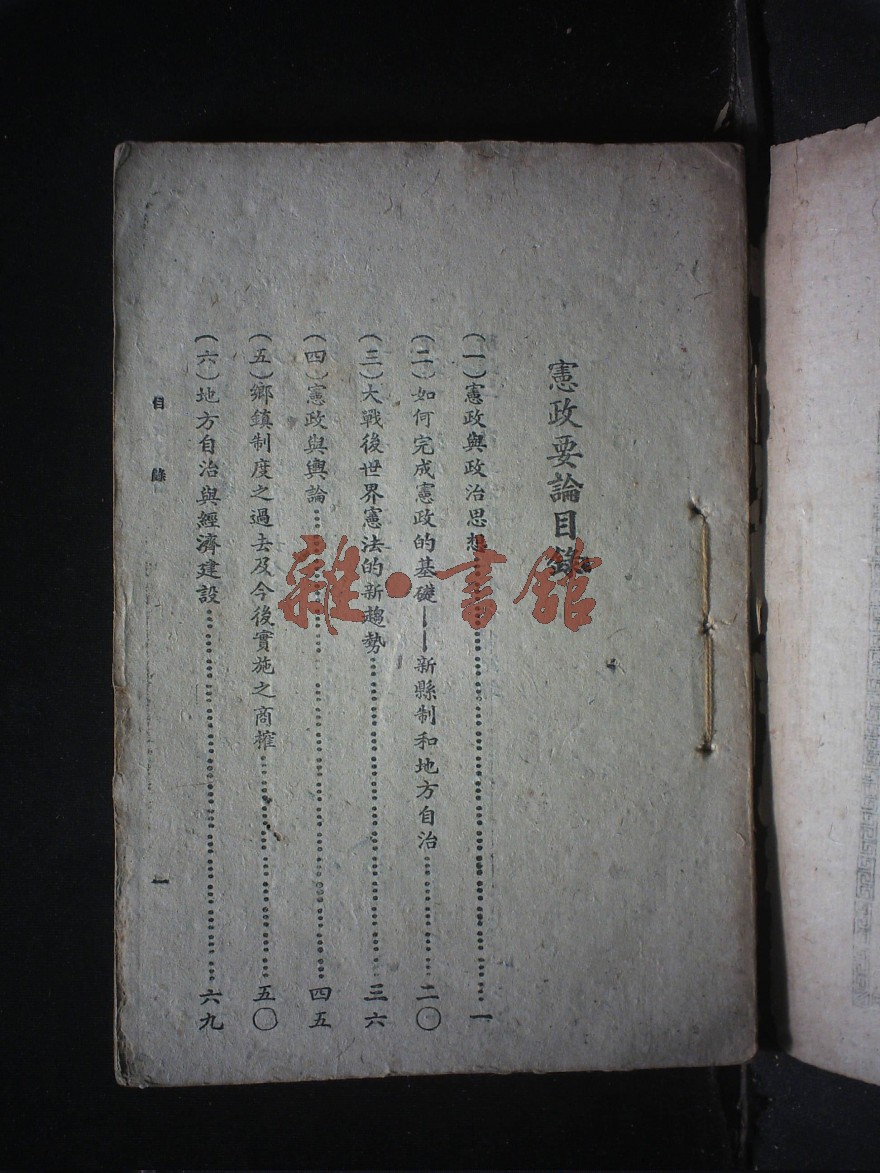 憲政要論目錄
(一)憲政與政治思想……………………一
(二)如何完成憲政的基礎——新縣制和地方自治……………二〇
(三)大戰後世界憲法的新趨勢……………………三六
(四)憲政與輿論……………………四五
(五)鄉鎮制度之過去及今後實施之商搉……………………五〇
(六)地方自治與經濟建設……………………六九
目錄 一
雜·書館